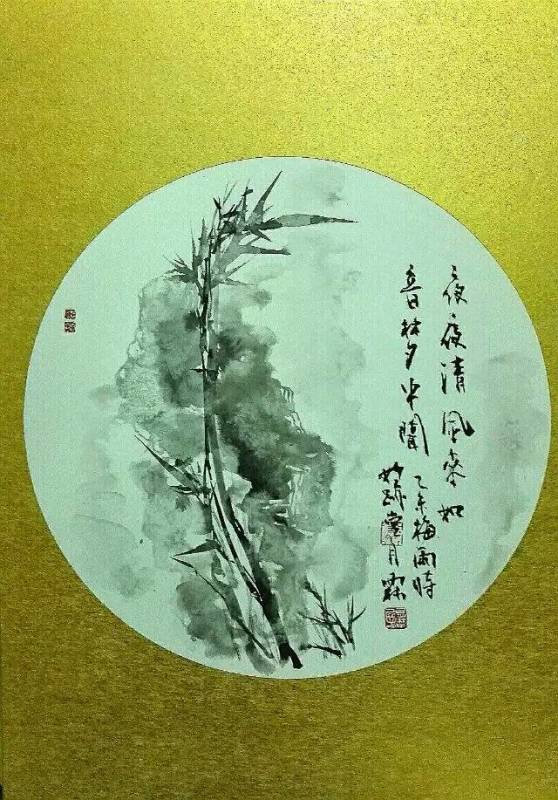 夜夜清風來如
音夕中聞
乙未梅雨時
月霖